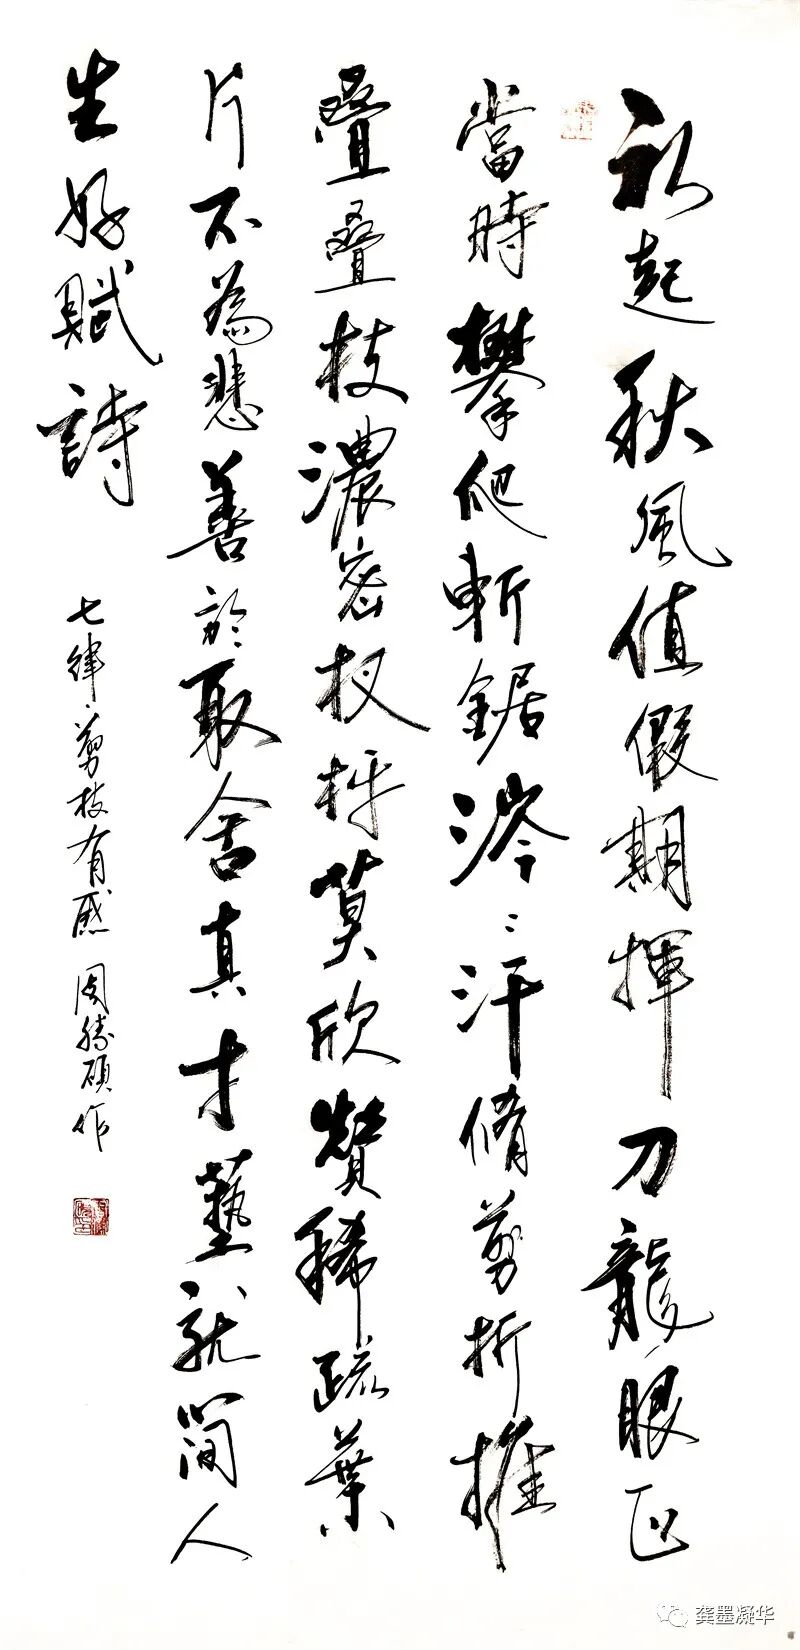 初起秋風值假期揮刀龍眼正
當時攀爬斬鋸涔〻汗脩剪折摧
疊疊枝濃密杈枒莫欣贊稀疏葉
片不為悲善於取舍真才藝就簡人
生好賦詩
七律·剪枝有感 周勝碩作
龚墨凝华